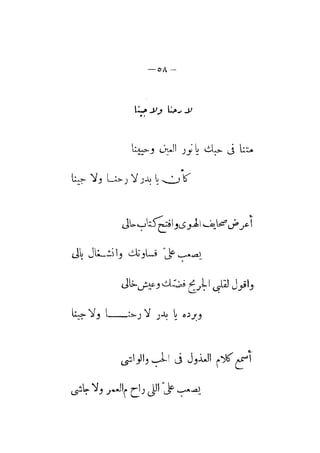 — ٥٨ —
لا رحنا ولا جينا
متنا فى حبك يا نور العين وحيينا
كأن يا بدر لا رحنــا ولا جينا
أعرض صحايف الهوى وافتح كتاب حالى
يصعب علىّ قساوتك وانشــغال بالى
واقول لقلبى الجريح فضّك وعيش خالى
وبرده يا بدر لا رحنــــا ولا جينا
أسمع كلام العذول فى الحب والواشى
يصعب علىّ اللى راح م العمر ولا جاشى